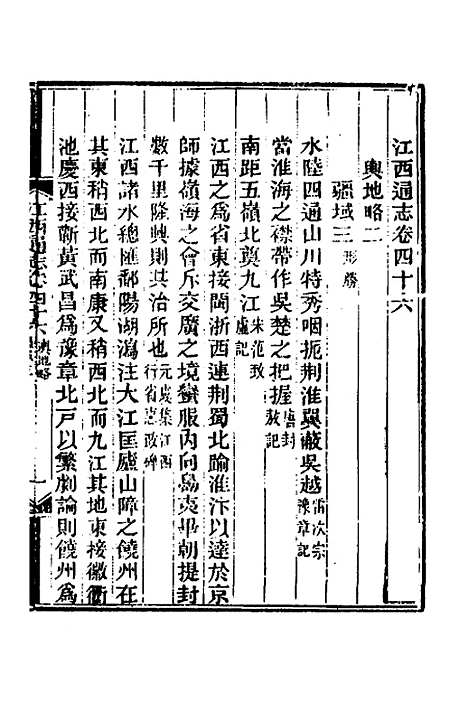 江西通志卷四十六
輿地略二
疆域三 形勝
水陸四通山川特秀咽扼荆淮翼蔽吳越 雷次宗豫章記
當淮海之襟帶作吳楚之把握 唐封敖記
南距五嶺北奠九江 宋范致虛記
江西之爲省東接閩浙西連荆蜀北踰淮汴以達於京
師據嶺海之會斥交廣之境蠻服內向島夷畢朝提封
數千里隆興則其治所也 元虞集江西行省惠政碑
江西諸水總匯鄱陽湖瀉注大江匡廬山障之饒州在
其東稍西北而南康又稍西北而九江其地東接徽衢
池慶西接蘄黃武昌爲豫章北戸以繁劇論則饒州爲
江西通志 卷四十六 輿地略